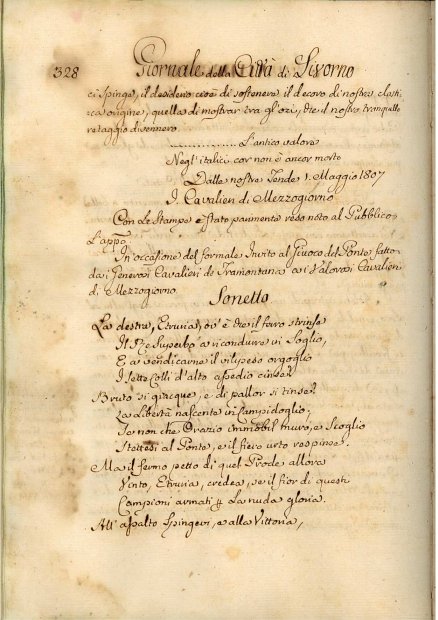 328 Giornale della Città di Livorno
ci spinge, il desiderio cioè di sostenere il decoro di nostra classi-
ca origine, quella di mostrar tra gl'ozi, che il nostro tranquillo
retaggio divennero.
L'antico valore
Negl'italici cor non è ancor morto
Dalle nostre Tende 1. Maggio 1807
I. Cavalieri di Mezzogiorno
Con le Stampe è stato parimente reso noto al Pubblico
L'appo
In occasione del formale Invito al Giuoco del Ponte fatto
da i Generosi Cavalieri di Tramontana a i Valorosi Cavalieri
di Mezzogiorno.
Sonetto
La destra, Etruria, ov'è che il ferro strinse
Il Rege Superbo a ricondurre in Soglio,
E a vendicarne il vilipeso orgoglio
I sette Colli d'alto assedio cinse?
Bruto si giacque, e di pallor si tinse
La libertà nascente in Campidoglio;
Se non che Orazio immobil muro, e Scoglio
Stettesi al Ponte, e il fiero urto respinse.
Ma il fermo petto di quel Prode allora
Vinto, Etruria, credea, se il fior di questi
Campioni armati La nuda gloria.
All'assalto Spingevi, e alla Vittoria,